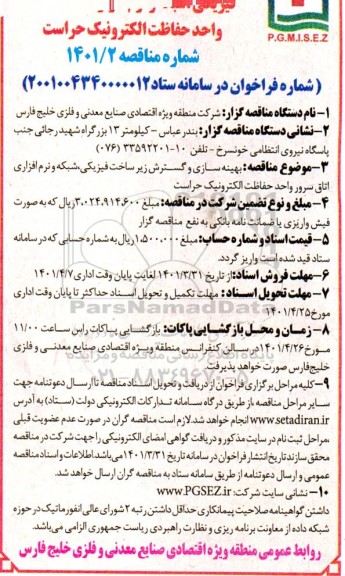 P.G.M.I.S.E.Z
واحد حفاظت الکترونیک حراست
شماره مناقصه ۱۴۰۱/۲
( شماره فراخوان در سامانه ستاد ۲۰۰۱۰۰۴۳۴۰۰۰۰۰۱۲)
۱- نام دستگاه مناقصه گزار: شرکت منطقه ویژه اقتصادی صنایع معدنی و فلزی خلیج فارس
۲- نشانی دستگاه مناقصه گزار: بندرعباس - کیلومتر ۱۳ بزرگراه شهید رجائی جنب
پاسگاه نیروی انتظامی خونسرخ - تلفن ۱۰-۳۳۵۹۲۲۰۱ (۰۷۶)
۳- موضوع مناقصه: بهینه سازی و گسترش زیر ساخت فیزیکی،شبکه و نرم افزاری
اتاق سرور واحد حفاظت الکترونیک حراست
۴- مبلغ و نوع تضمین شرکت در مناقصه: مبلغ ۳.۰۲۴.۹۱۴.۶۰۰ ریال که به صورت
فیش واریزی یا ضمانت نامه بانکی به نفع مناقصه گزار
۵- قیمت اسناد و شماره حساب: مبلغ ۱.۵۰۰.۰۰۰ ریال به شماره حسابی که در سامانه
ستاد قید شده است واریز گردد.
۶- مهلت فروش اسناد: از تاریخ ۱۴۰۱/۳/۳۱ لغایت پایان وقت اداری ۱۴۰۱/۴/۷
۷- مهلت تحویل اسناد: مهلت تکمیل و تحویل اسناد حداکثر تا پایان وقت اداری
مورخ ۱۴۰۱/۴/۲۵
۸- زمان و محل بازگشایی پاکات: بازگشایی پاکات راس ساعت ۱۱/۰۰
مورخ ۱۴۰۱/۴/۲۶ در سالن کنفرانس منطقه ویژه اقتصادی صنایع معدنی و فلزی
خلیج فارس صورت خواهد پذیرفت
۹- کلیه مراحل برگزاری فراخوان از دریافت و تحویل اسناد مناقصه تا ارسال دعوتنامه جهت
سایر مراحل مناقصه،از طریق درگاه سامانه تدارکات الکترونیکی دولت (ستاد) به آدرس
www.setadiran.ir انجام خواهد شد.لازم است مناقصه گران در صورت عدم عضویت قبلی
،مراحل ثبت نام در سایت مذکور و دریافت گواهی امضای الکترونیکی را جهت شرکت در مناقصه
محقق سازند.تاریخ انتشار فراخوان در سامانه تاریخ ۱۴۰۱/۳/۳۱ می باشد.اطلاعات و اسناد مناقصه
عمومی و ارسال دعوتنامه از طریق سامانه ستاد به مناقصه گران ارسال خواهد شد.
۱۰- نشانی سایت شرکت: www.PGSEZ.ir
داشتن گواهینامه صلاحیت پیمانکاری حداقل داشتن رتبه ۷ شورای عالی انفورماتیک در حوزه
شبکه داده از معاونت برنامه ریزی و نظارت راهبردی ریاست جمهوری الزامی می باشد.
روابط عمومی منطقه ویژه اقتصادی صنایع معدنی و فلزی خلیج فارس